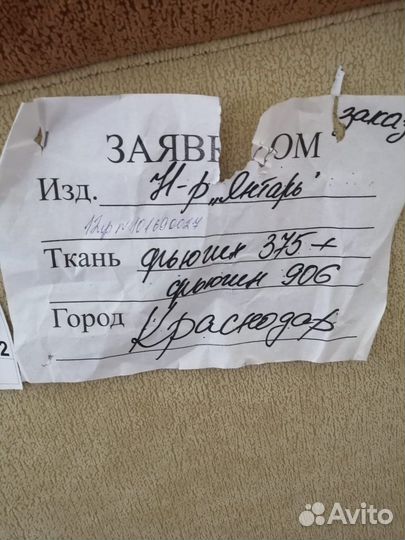 заказ
ЗАЯВ ОМ
Изд. Н-р „Янтарь"
Ткань фьюжн 375 +
фьюжн 906
Город Краснодар
2
Avito